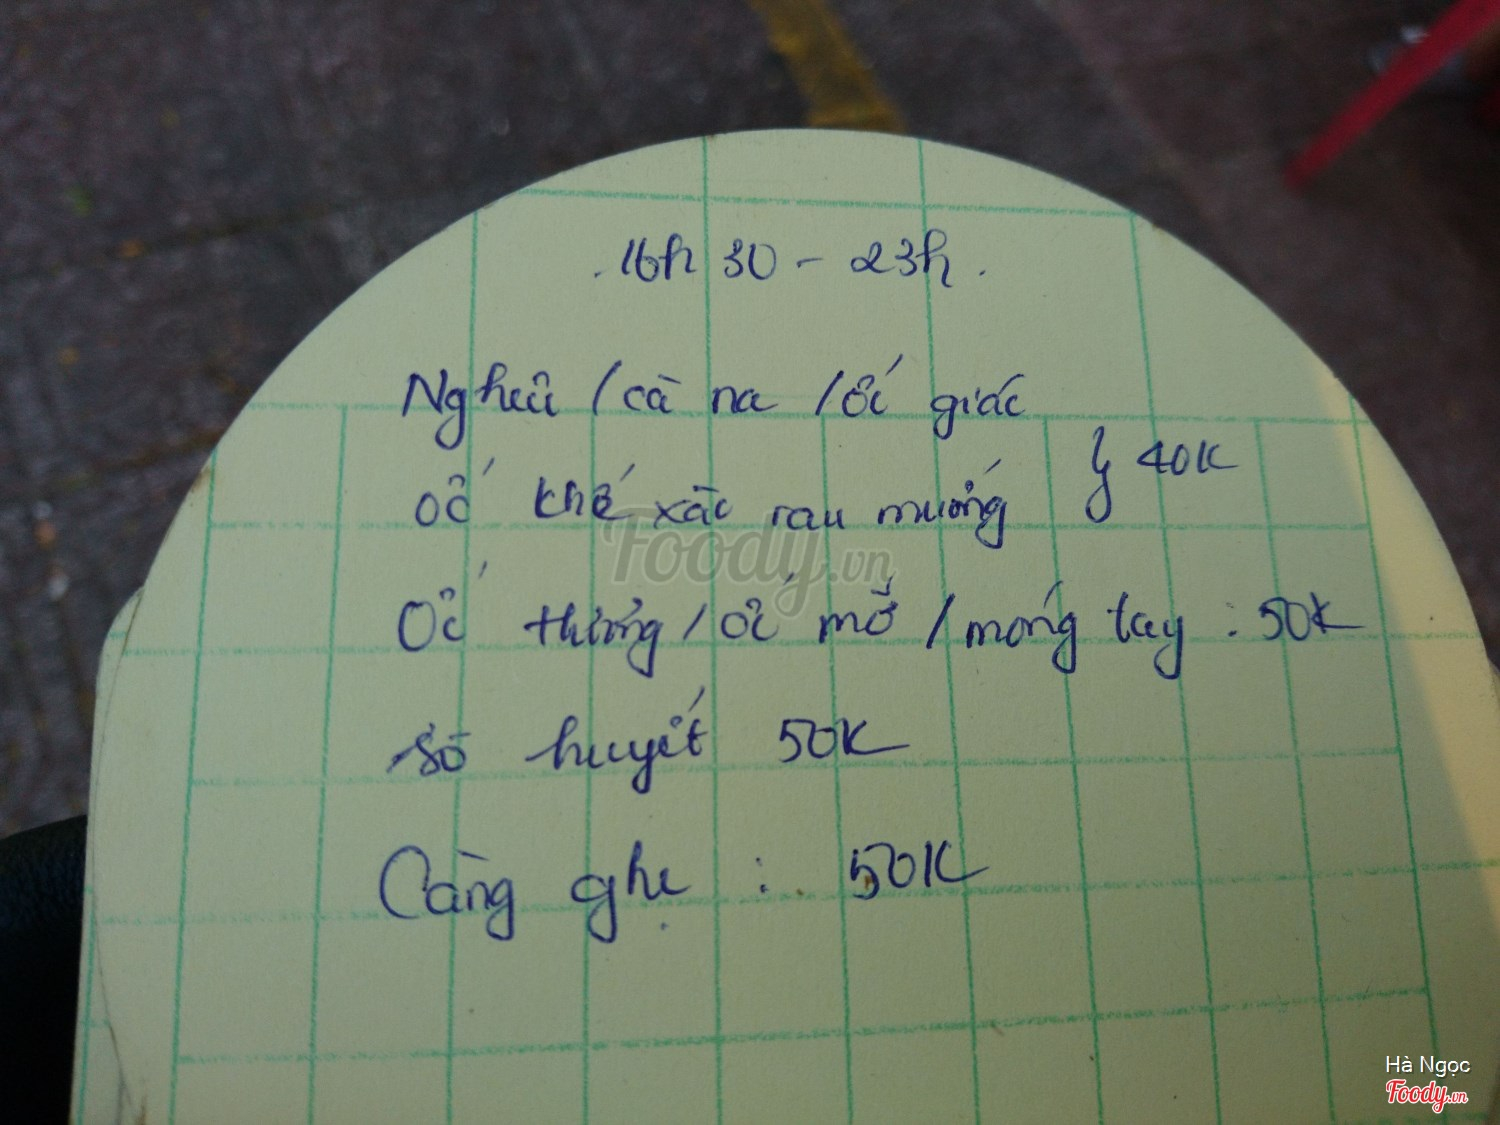 16h 30 - 23h.
Nghêu / cà na / ốc giác
ốc khế xào rau muống } 40K
Ốc hương / ốc mỡ / móng tay : 50K
sò huyết 50K
Càng ghẹ : 50K
Foody.vn
Hà Ngọc
Foody.vn